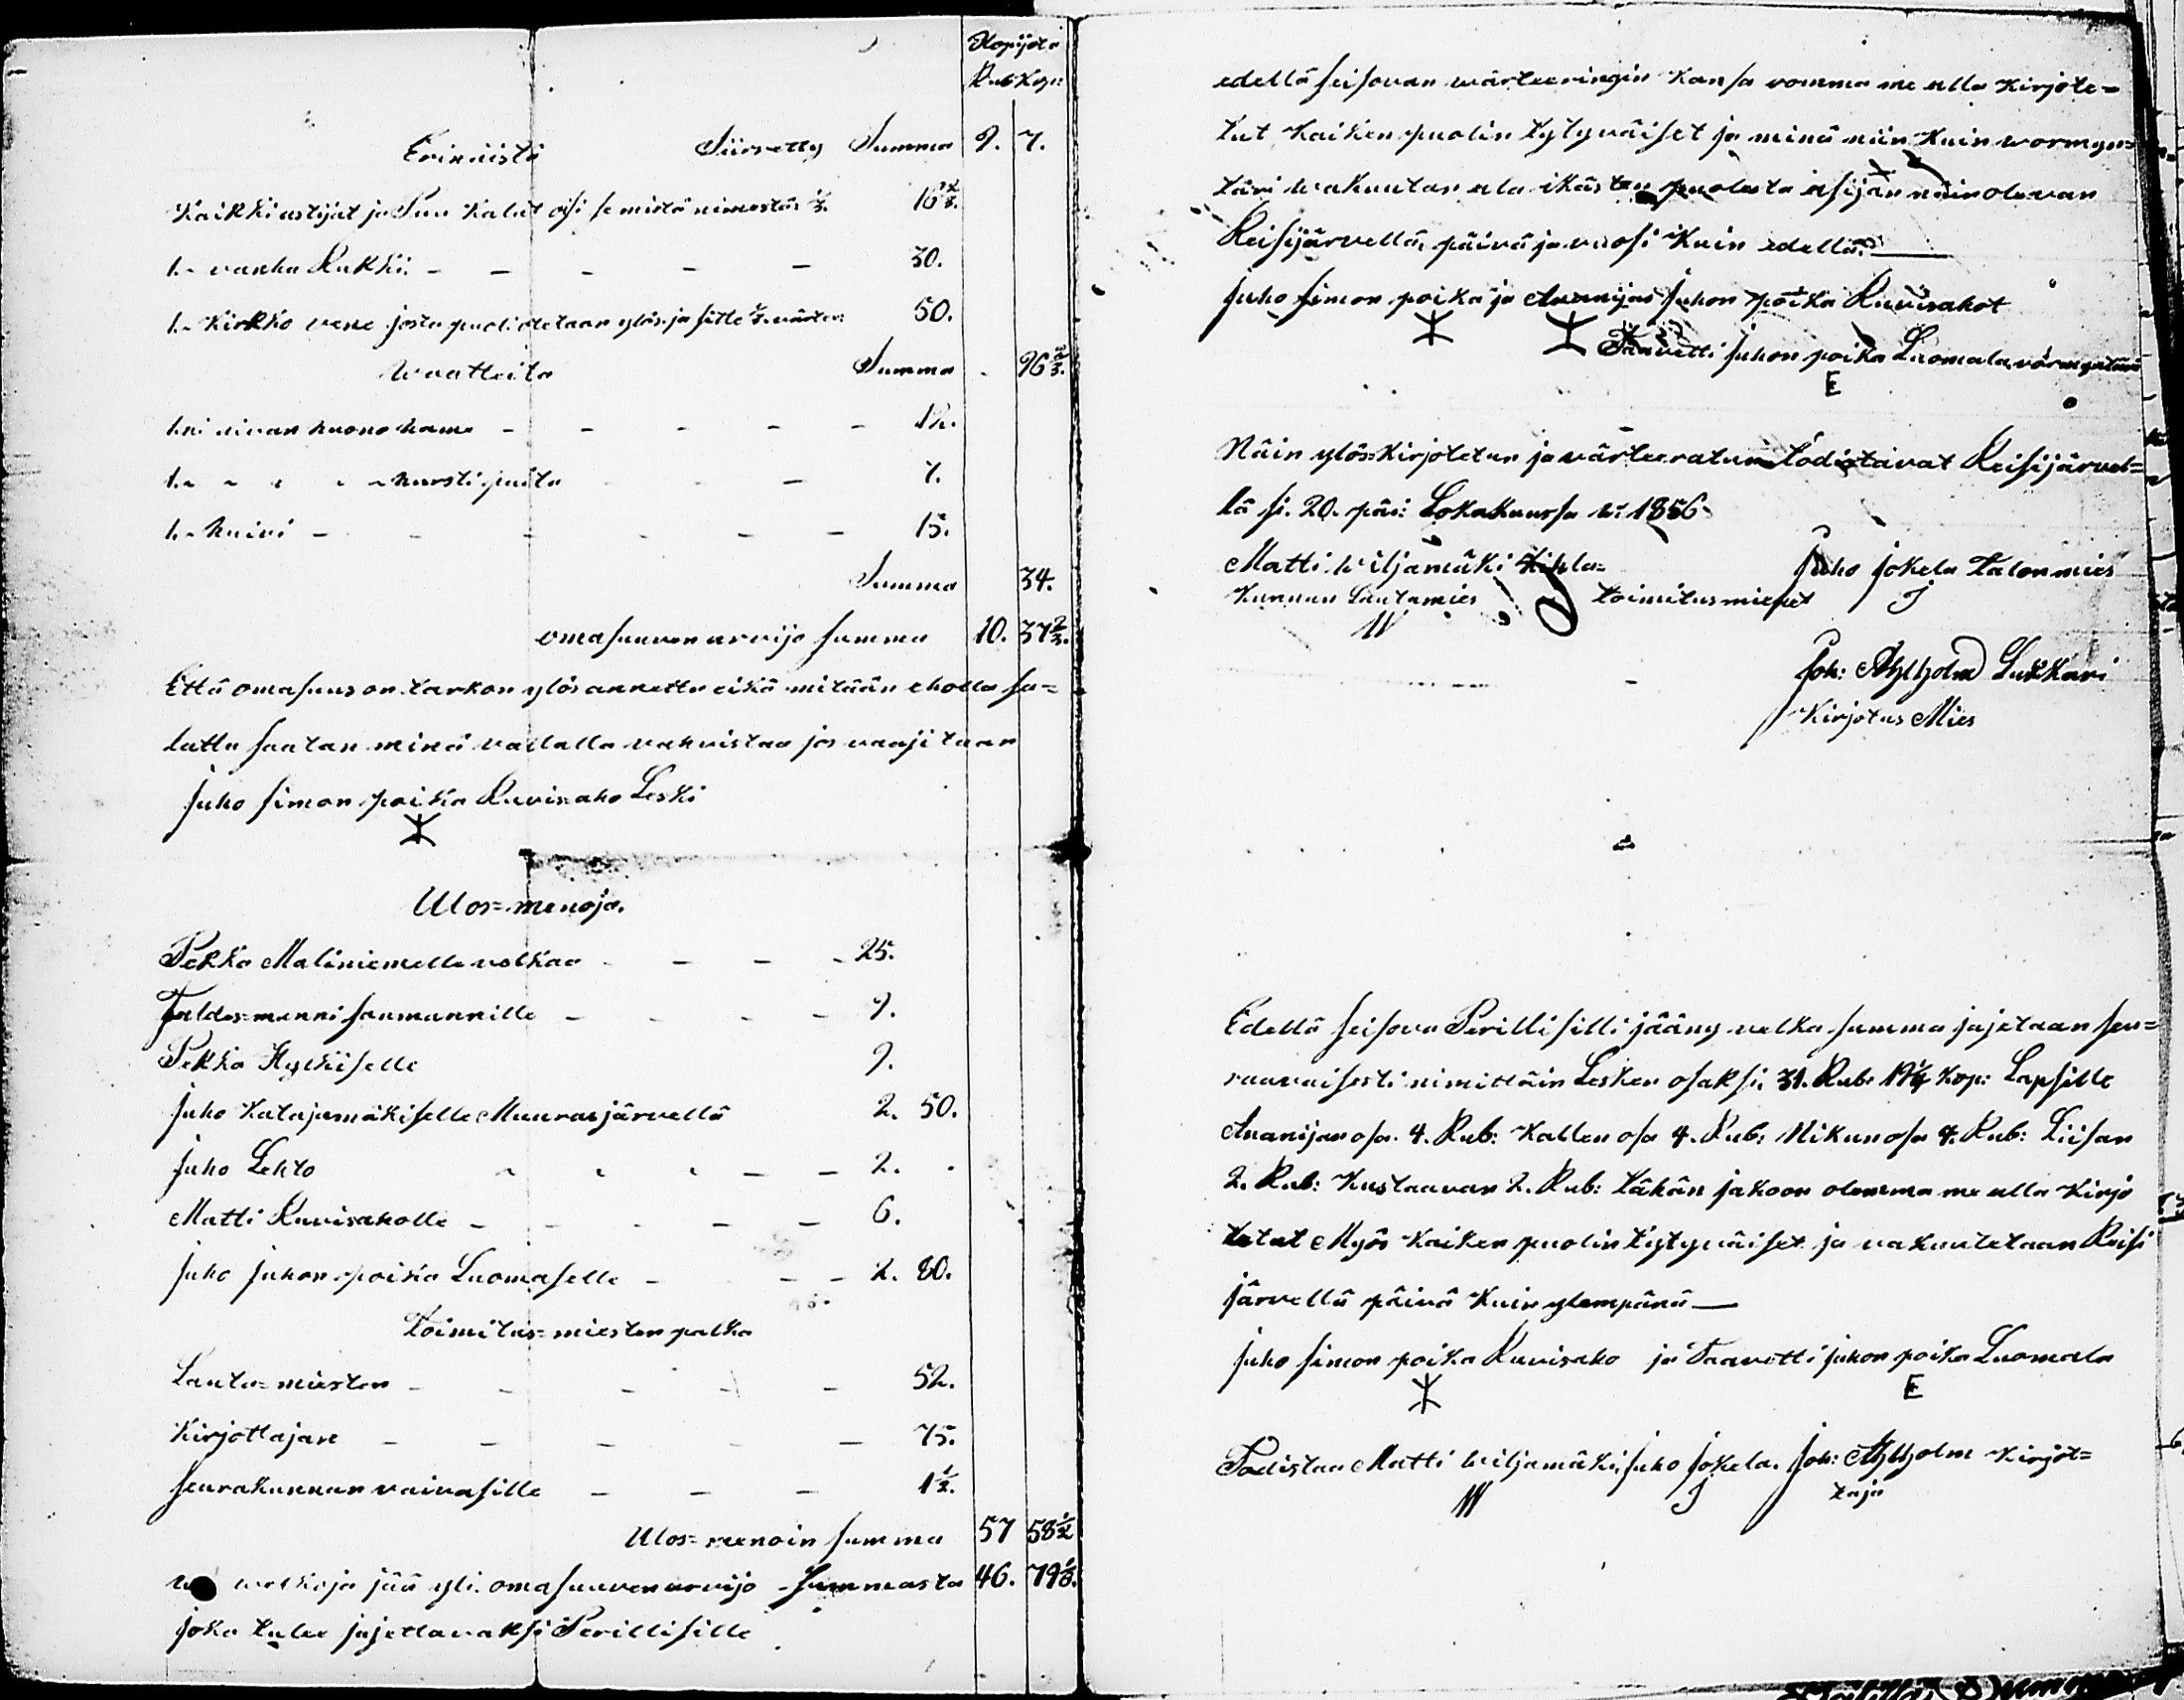 Hopijota
Rub Kop:
Erinäistä Siirretty Summa 9. 7.
Kaikki astijat ja Puu Kalut osi se mistä nimestäs ⅓. 16⅔.
1. vanha Rukki. – – – – – 30.
1. Kirkko vene josta puoli otetaan ylös ja sille 50.
Waatteita Summa . 96⅔.
hame – – – – – 12.
1. " " " " hursti – 7.
1. huivi – – – – – – 15.
Summa 34.
omasuuven arvijo summa 10. 37⅔.
Että omasuus on tarkon ylös annettu eikä mitään eholla sa=
lattu saatan minä vallalla vahvistaa jos vaajitaan
Juho Simon poika Ruvisaho Leski
Ulos=menoja.
Pekka Maliniemelle velkaa – – – – 25.
Faldes=manni – – – – 9.
Pekka Hylkiselle 9.
Juho Katajamäkiselle Muurasjärvellä 2. 50.
Juho Lehto " " " – – 2. .
Matti Ruvisaholle – – – – – 6.
Juho Juhon poika Luomaselle – – – 2. 80.
Toimitus=miesten palka
Lauta=miesten – – – – – 52.
Kirjottajan – – – – – 75.
Seurakunnan vaivasille – – – 1½.
Ulos=menoin summa 57 58½
welkoja jää yli omasuuven arvijo -summasta 46. 79⅙.
joka tulee jajettavaksi Perillisille
edellä seisovan wärteeringin kansa vomma me alla kirjote=
tut kaiken puolin tytyväiset ja minä niin kuin wormyn=
täri wakuutan ala ikästen puolesta asijan näin olevan
Reisijärvellä, päivä ja vuosi kuin edellä.
Juho Simon poika ja Ananijas Juhon poika Ruvisahot
Taavetti Juhon poika Luomala
E
Näin ylös=kirjotetun ja värteeratun todistavat Reisijärvel=
lä si. 20. päi: Lokakuussa w: 1856
Matti Wiljamäki Kihla= Juho Jokela talonmies
kunnan Lautamies toimitusmiehet J
W
Joh: Ahlholm Lukkari
Kirjotus Mies
Edellä seisova Perillisilli jääny velka summa jajetaan seu=
raavaisesti nimittäin Lesken osaksi, 31. Rub: 19¼ kop: Lapsille
Ananijan osa. 4. Rub: Kallen osa 4. Rub: Nikun osa 4. Rub: Liisan
2. Rub: Kustaavan 2. Rub: tähän jakoon olemma me alla kirjo
tetut Myös kaiken puolin tytyväiset ja vakuutetaan Reisi
järvellä päivä kuin ylempänä —
Juho Simon poika Ruvisaho ja Taavetti Juhon poika Luomala
E
Todistaa Matti Wiljamäki, Juho Jokela. Joh: Ahlholm kirjot=
W J taja